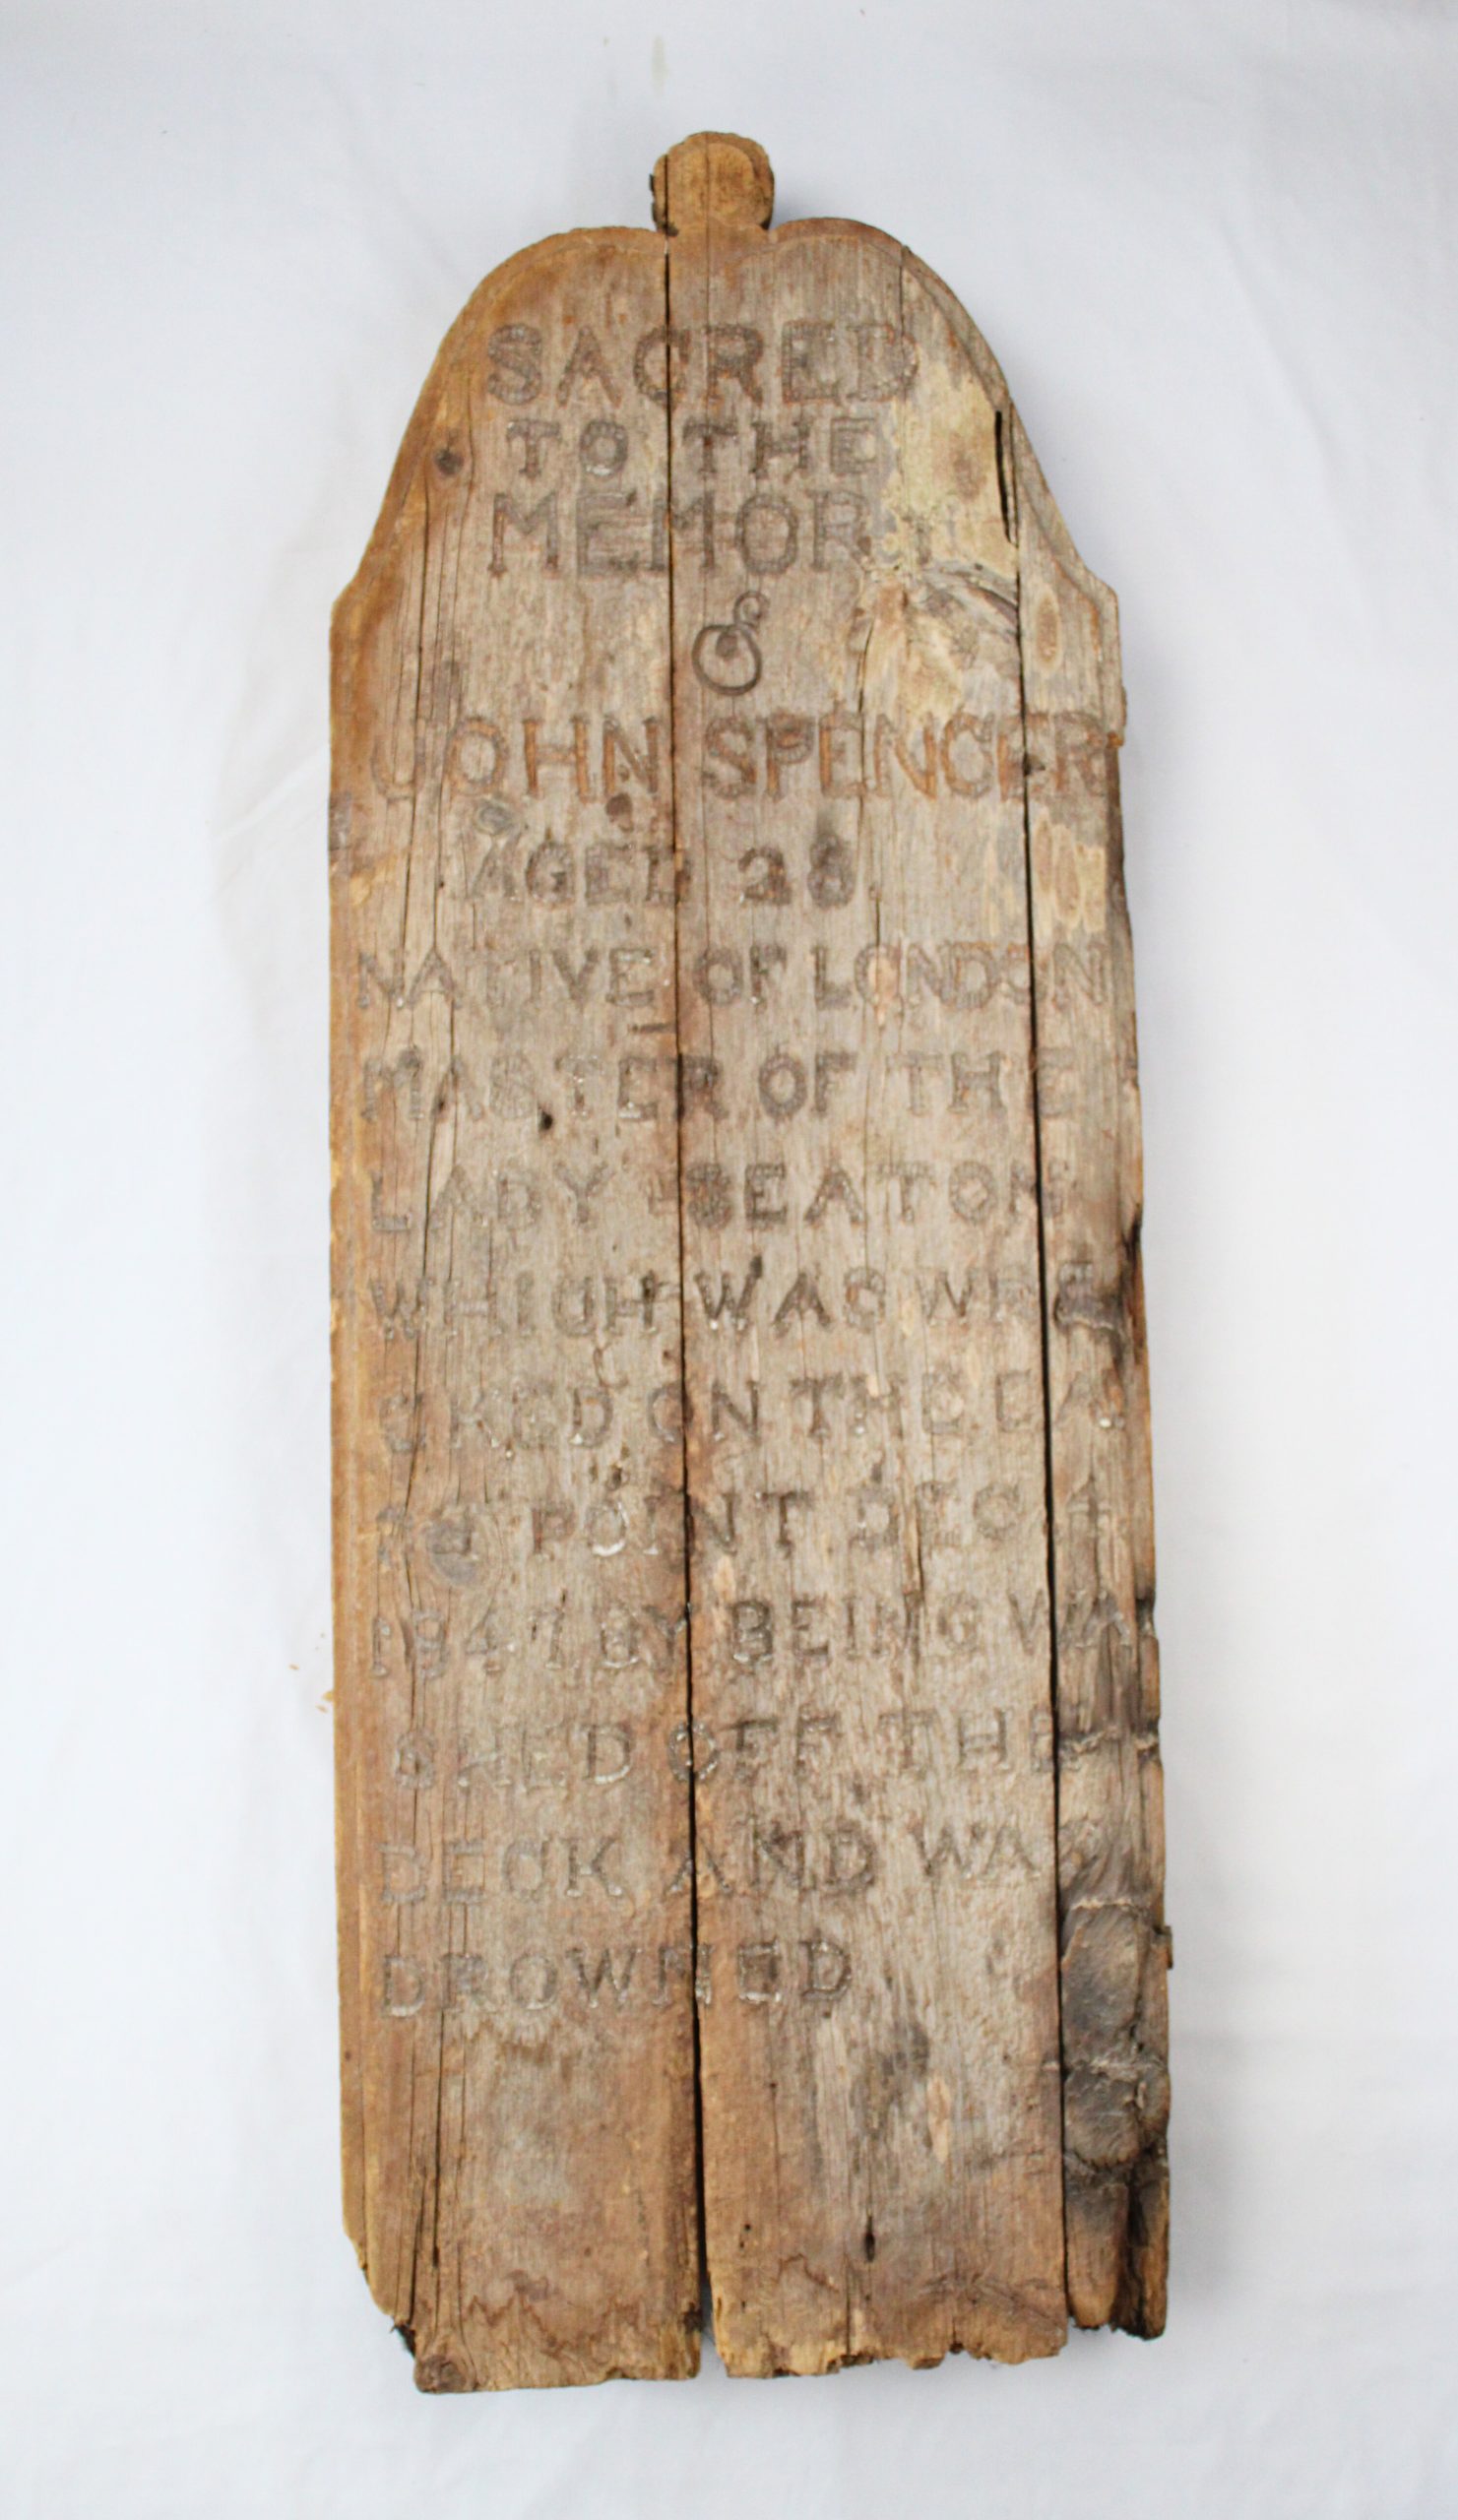 SACRED
TO THE
MEMORY
of
JOHN SPENCER
AGED 28
NATIVE OF LONDON
MASTER OF THE
LADY SEATON
WHICH WAS WRE
CKED ON THE EA
ST POINT DEC 4
1847 BY BEING WA
SHED OFF THE
DECK AND WAS
DROWNED